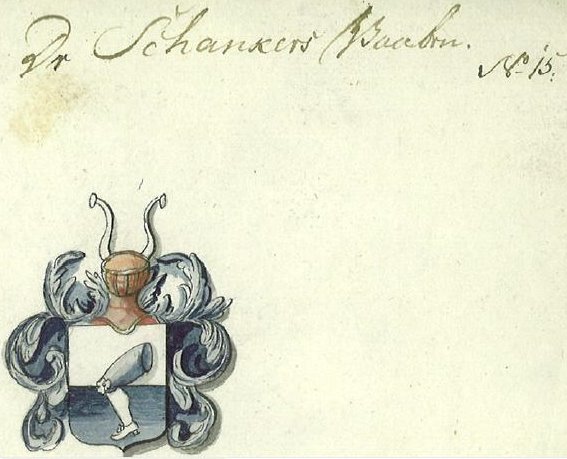 Dr Schankers Vaaben.
No 15.